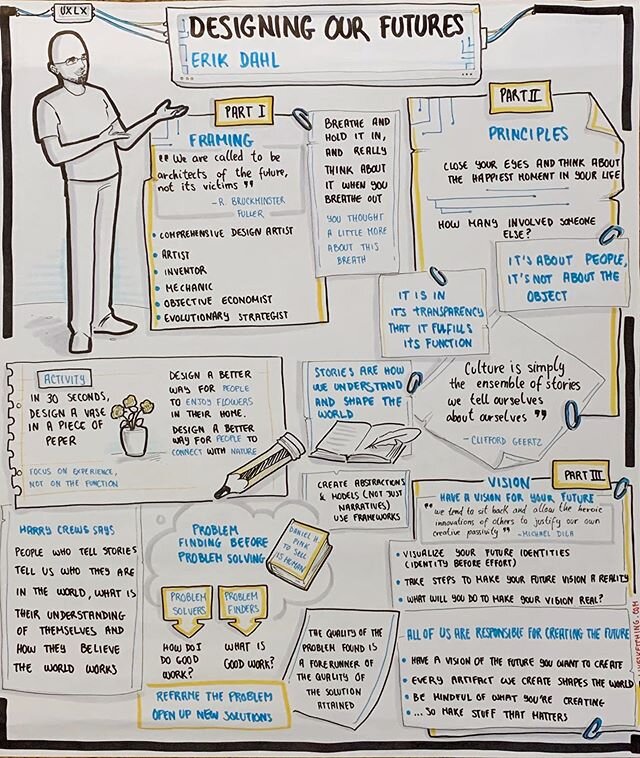 UXLX
DESIGNING OUR FUTURES
ERIK DAHL
PART I
FRAMING
"We are called to be
architects of the future,
not its victims"
- R. BRUCKMINSTER
FULLER
• COMPREHENSIVE DESIGN ARTIST
• ARTIST
• INVENTOR
• MECHANIC
• OBJECTIVE ECONOMIST
• EVOLUTIONARY STRATEGIST
BREATHE AND
HOLD IT IN,
AND REALLY
THINK ABOUT
IT WHEN YOU
BREATHE OUT
YOU THOUGHT
A LITTLE MORE
ABOUT THIS
BREATH
PART II
PRINCIPLES
CLOSE YOUR EYES AND THINK ABOUT
THE HAPPIEST MOMENT IN YOUR LIFE
HOW MANY INVOLVED SOMEONE
ELSE?
IT'S ABOUT PEOPLE,
IT'S NOT ABOUT THE
OBJECT
IT IS IN
IT'S TRANSPARENCY
THAT IT FULFILLS
ITS FUNCTION
ACTIVITY
IN 30 SECONDS,
DESIGN A VASE
IN A PIECE OF
PEPER
FOCUS ON EXPERIENCE,
NOT ON THE FUNCTION
DESIGN A BETTER
WAY FOR PEOPLE
TO ENJOY FLOWERS
IN THEIR HOME.
DESIGN A BETTER
WAY FOR PEOPLE TO
CONNECT WITH NATURE
STORIES ARE HOW
WE UNDERSTAND
AND SHAPE THE
WORLD
Culture is simply
the ensemble of stories
we tell ourselves
about ourselves "
- CLIFFORD GEERTZ
CREATE ABSTRACTIONS
& MODELS (NOT JUST
NARRATIVES)
USE FRAMEWORKS
HARRY CREWS SAYS
PEOPLE WHO TELL STORIES
TELL US WHO THEY ARE
IN THE WORLD, WHAT IS
THEIR UNDERSTANDING
OF THEMSELVES AND
HOW THEY BELIEVE
THE WORLD WORKS
PROBLEM
FINDING BEFORE
PROBLEM SOLVING
DANIEL H.
PINK
TO SELL
IS HUMAN
PROBLEM
SOLVERS
PROBLEM
FINDERS
HOW DO I
DO GOOD
WORK?
WHAT IS
GOOD WORK?
REFRAME THE PROBLEM
OPEN UP NEW SOLUTIONS
THE QUALITY OF THE
PROBLEM FOUND IS
A FORERUNNER OF
THE QUALITY OF
THE SOLUTION
ATTAINED
PART III
VISION
HAVE A VISION FOR YOUR FUTURE
"we tend to sit back and allow the heroic
innovations of others to justify our own
creative passivity" - MICHAEL DILA
• VISUALIZE YOUR FUTURE IDENTITIES
(IDENTITY BEFORE EFFORT)
• TAKE STEPS TO MAKE YOUR FUTURE VISION A REALITY
• WHAT WILL YOU DO TO MAKE YOUR VISION REAL?
ALL OF US ARE RESPONSIBLE FOR CREATING THE FUTURE
• HAVE A VISION OF THE FUTURE YOU WANT TO CREATE
• EVERY ARTIFACT WE CREATE SHAPES THE WORLD
• BE MINDFUL OF WHAT YOU'RE CREATING
• ...SO MAKE STUFF THAT MATTERS